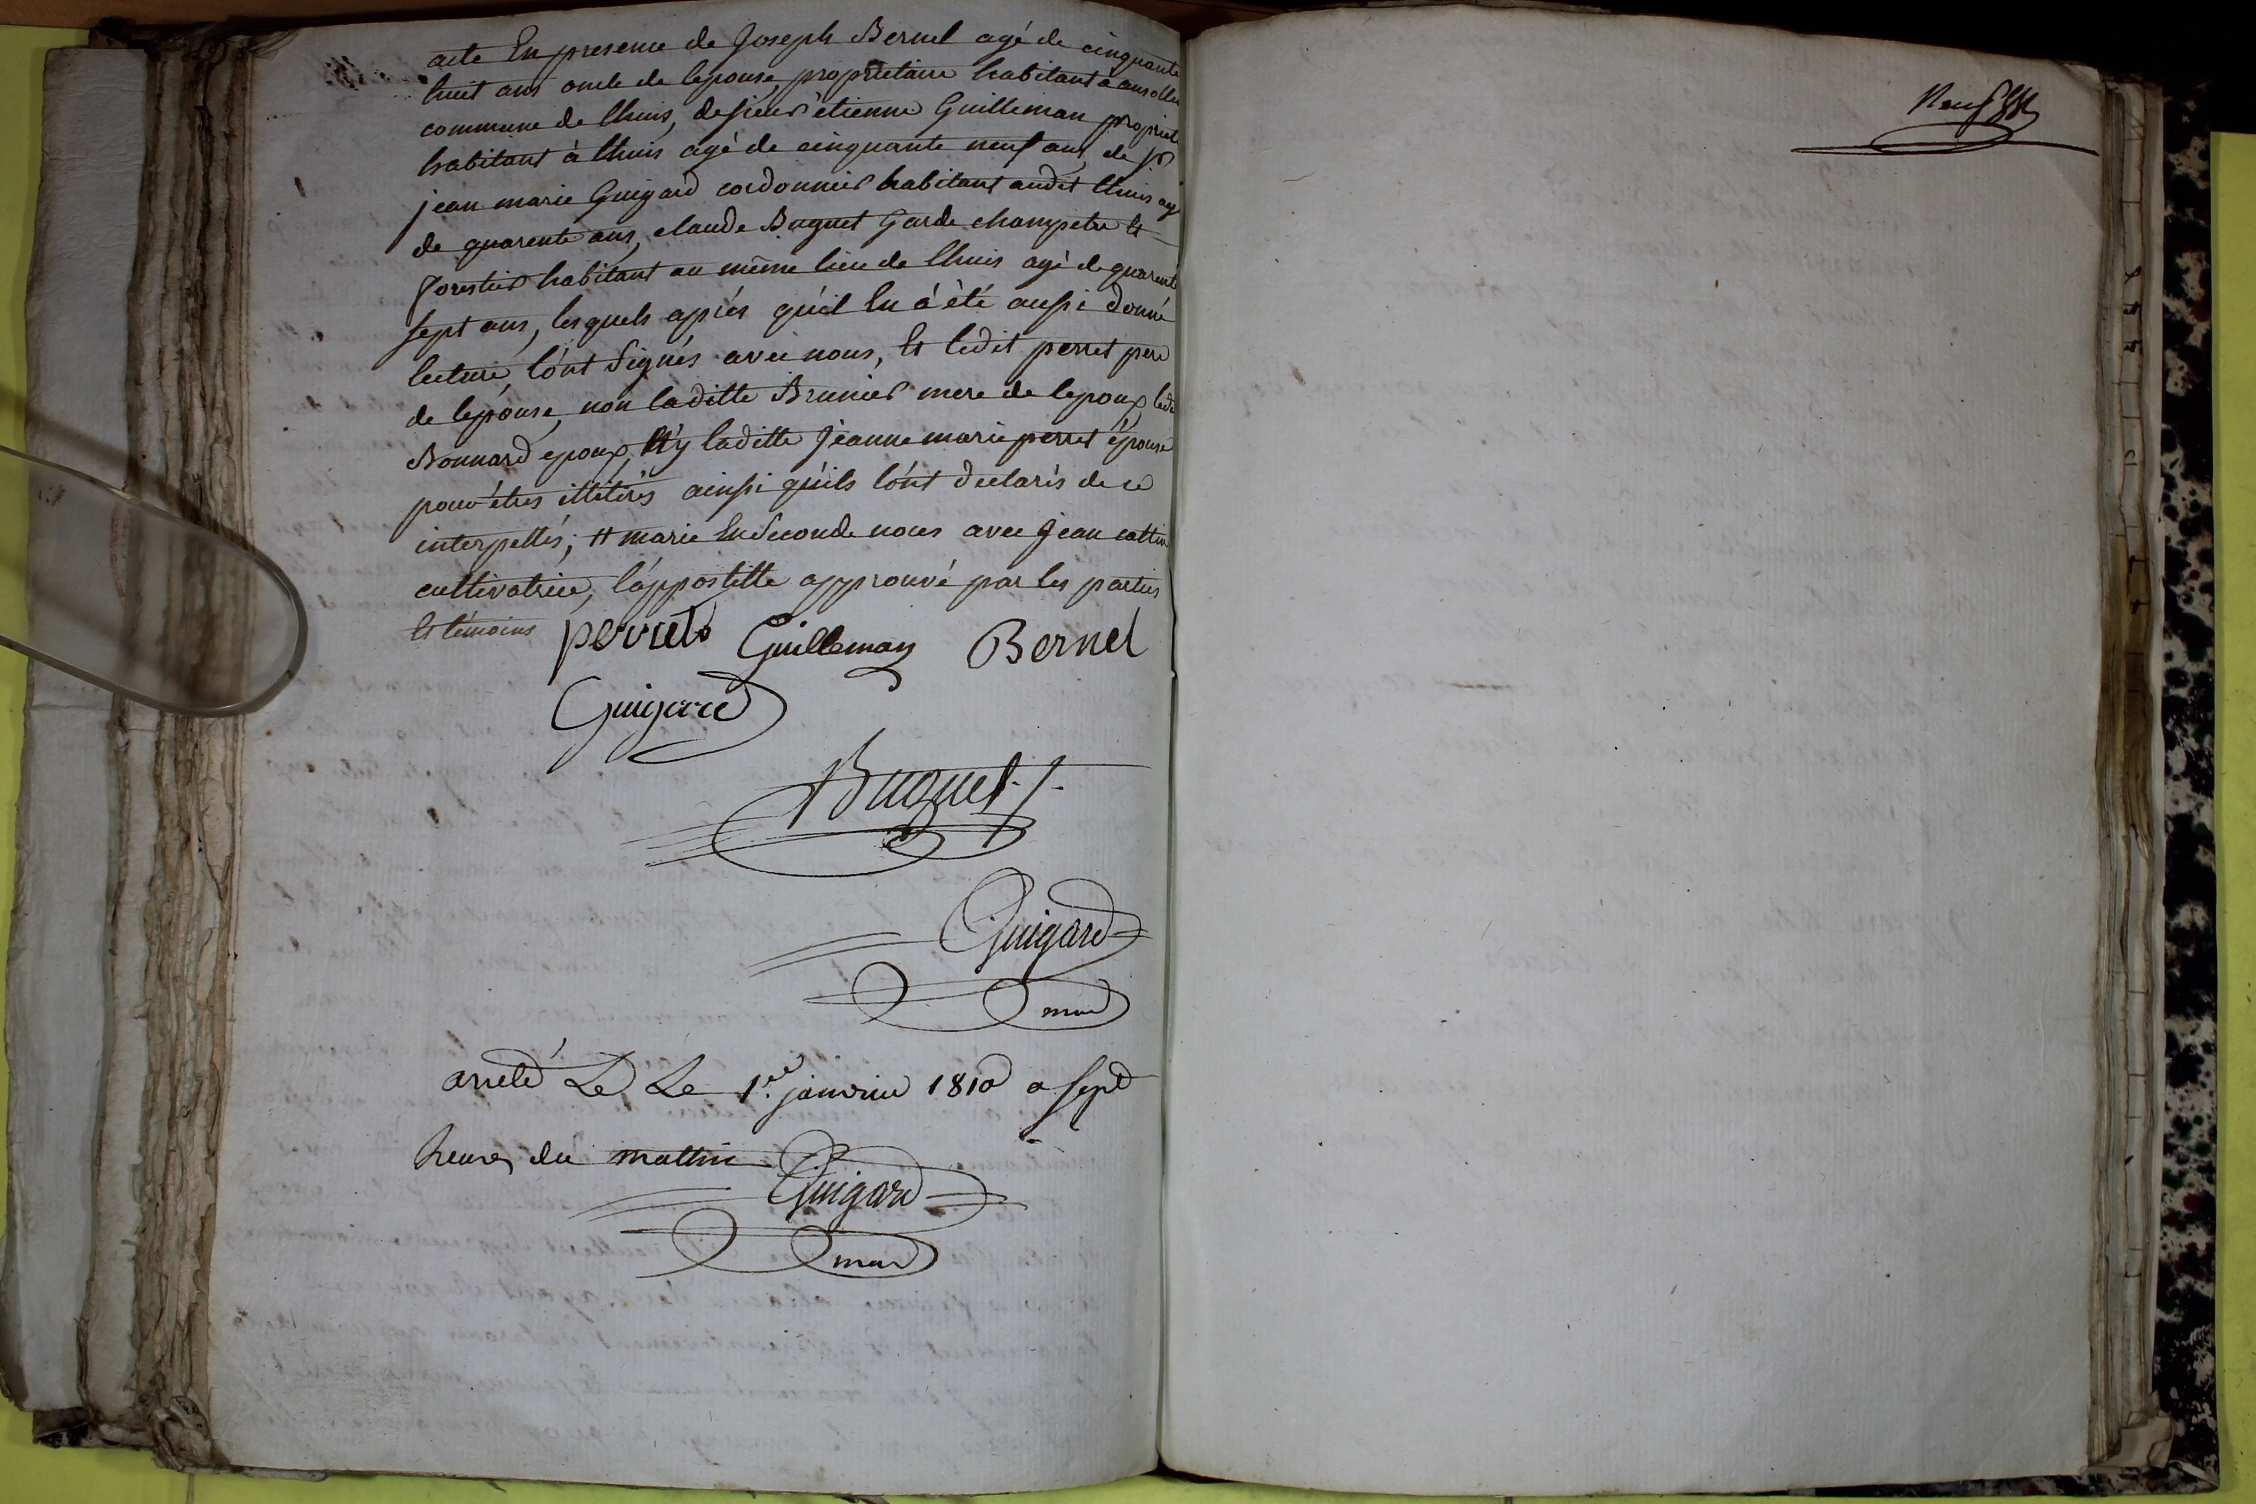 acte En presence de Joseph Bernel agé de cinquante
huit ans oncle de lepouse, proprietaire habitant à ansolin
commune de lhuis, de sieur étienne Guilleman propriet
habitant à lhuis agé de cinquante neuf ans, de sr
jean marie Guigard cordonnier habitant audit lhuis agé
de quarente ans, claude Buguet Garde champetre Et
forestier habitant au même lieu de lhuis agé de quarente
sept ans, lesquels aprés qu'il En à été aussi donné
lecture, l'ont Signés avec nous, Et ledit perret pere
de lepouse, non laditte Brunier mere de lepoux, ledit
Bonnard epoux, N'y laditte Jeanne marie perret épouse
pour étres illétirés ainsi qu'ils l'ont declarés de ce
interpellés; # marie En Seconde noces avec Jean cattin
cultivatrice, l'appostille approuvé par les parties
Et témoins perret Guilleman Bernel
Guigard
Buguet
Guigard
maire
arreté Le Le 1.er janvier 1810 a sept
heures du mattin
Guigard
maire
Neuf